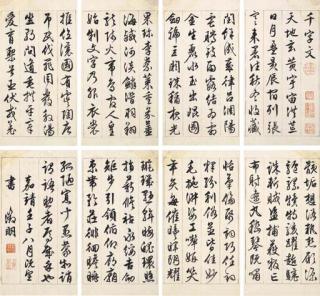 千字文
天地玄黄宇宙洪荒
日月盈昃辰宿列張
寒來暑往秋收冬藏
閏餘成歲律吕調陽
雲騰致雨露結為霜
金生麗水玉出崑岡
劍號巨闕珠稱夜光
果珍李柰菜重芥薑
海鹹河淡鱗潛羽翔
龍師火帝鳥官人皇
始制文字乃服衣裳
推位讓國有虞陶唐
弔民伐罪周發殷湯
坐朝問道垂拱平章
愛育黎首臣伏戎羌
骸垢想浴執熱願涼
驢騾犢特駭躍超驤
誅斬賊盜捕獲叛亡
布射遼丸嵇琴阮嘯
恬筆倫紙鈞巧任釣
釋紛利俗並皆佳妙
毛施淑姿工顰妍笑
年矢每催曦暉朗曜
璇璣懸斡晦魄環照
指薪修祜永綏吉劭
矩步引領俯仰廊廟
束帶矜莊徘徊瞻眺
孤陋寡聞愚蒙等誚
謂語助者焉哉乎也
嘉靖壬子八月既望
書 徵明